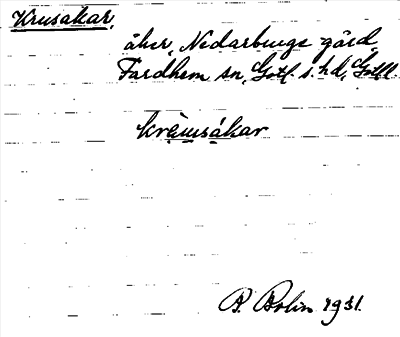 Krusakar,
åker, Nedarburge gård,
Fardhem sn, Gotl. s. hd, Gotl.
B. Bolin 1931.